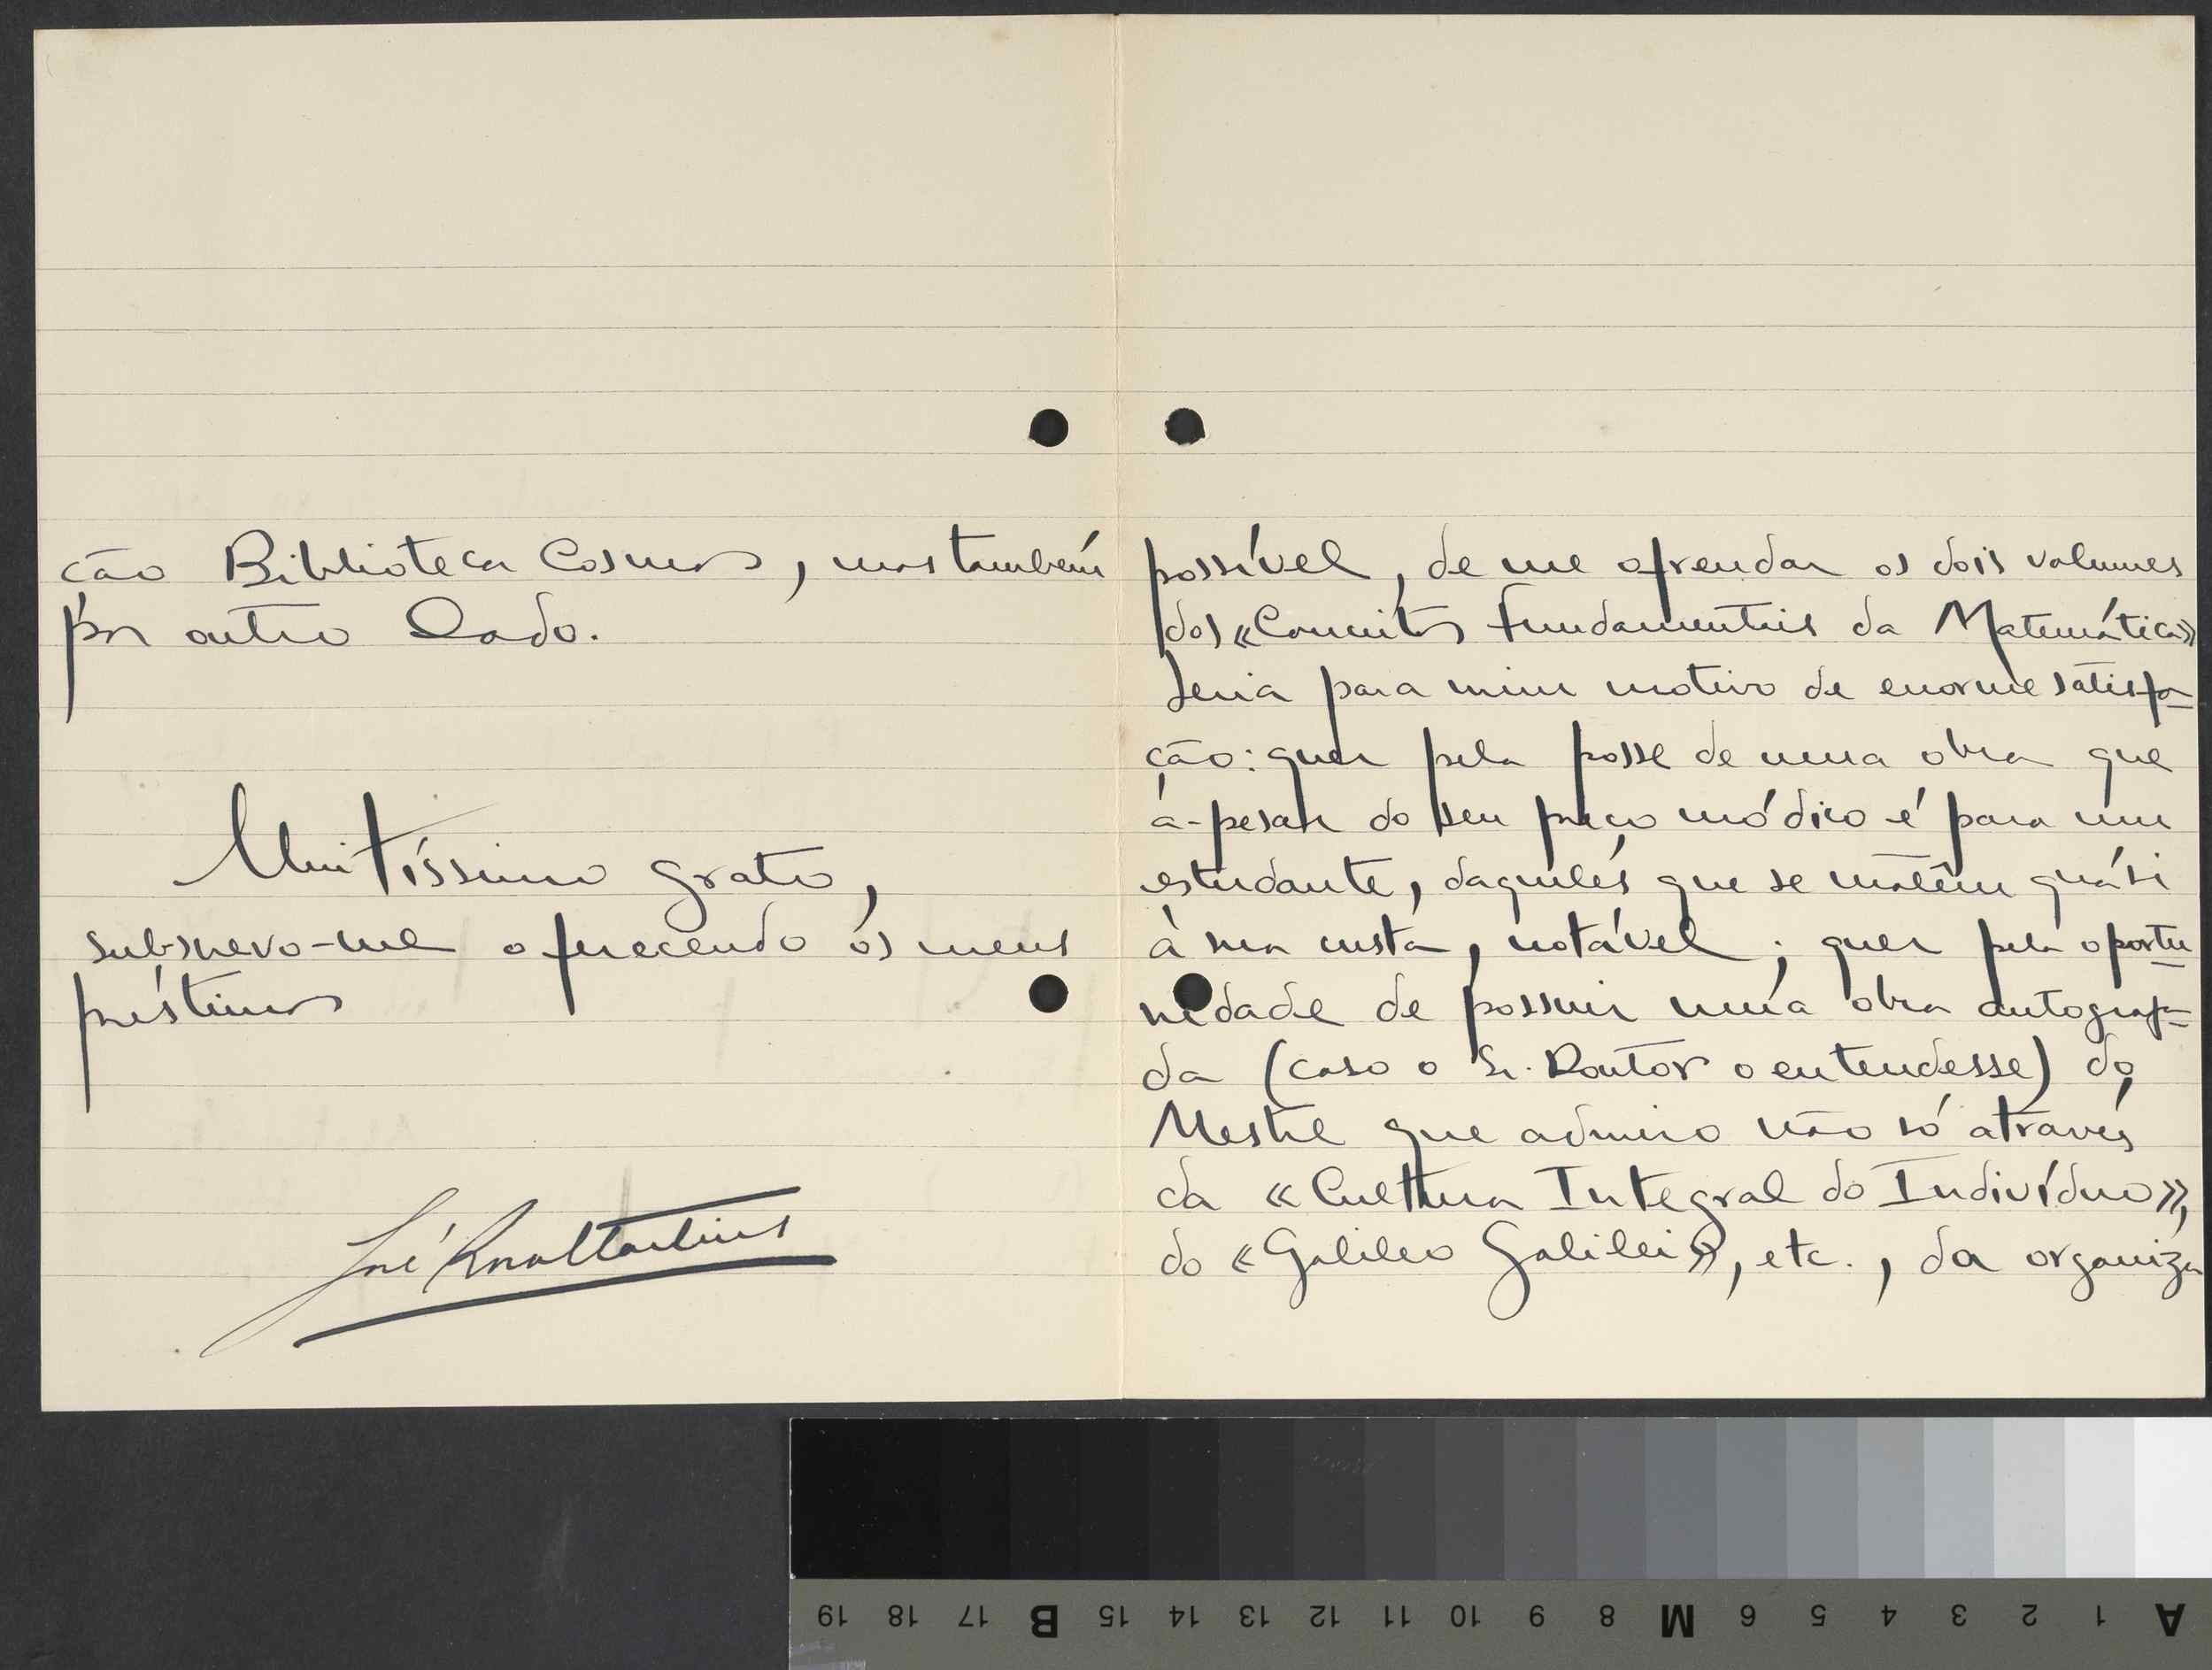 possível, de me ofrendar os dois volumes
dos «Conceitos Fundamentais da Matemática»
seria para mim motivo de enorme satisfa-
ção: quer pela posse de uma obra que
á-pesar do seu preço módico é para um
estudante, daquêles que se matêm quási
à sua custa, notável; quer pela oportu-
nidade de possuir uma obra autografa-
da (caso o Sr. Doutor o entendesse) do
Mestre que admiro não só através
da «Cultura Integral do Indivíduo»,
do «Galileo Galilei», etc., da organiza
ção Biblioteca Cosmos, mas também
por outro lado.
Muitíssimo grato,
subscrevo-me oferecendo os meus
préstimos
José
19 18 17 B 15 14 13 12 11 10 9 8 M 6 5 4 3 2 1 A